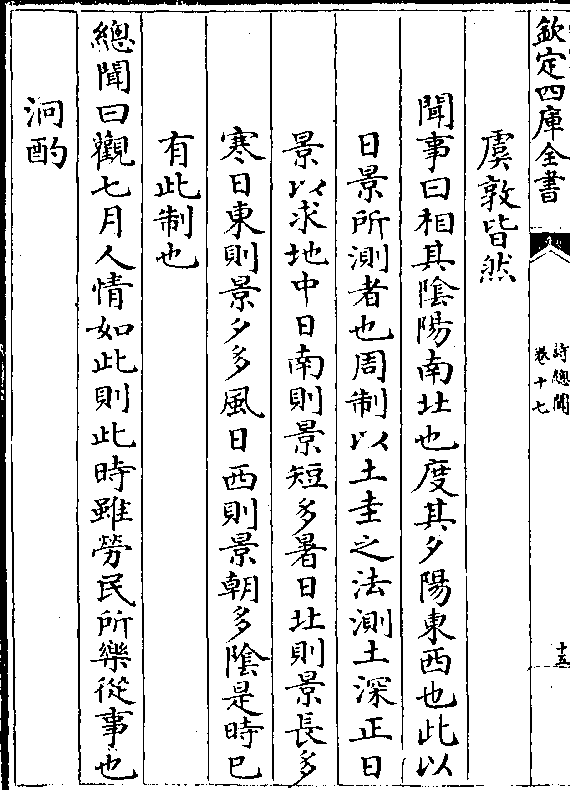 欽定四庫全書
詩總聞
卷十七
十五
虞敦皆然
聞事曰相其陰陽南北也度其夕陽東西也此以
日景所測者也周制以土圭之法測土深正日
景以求地中日南則景短多暑日北則景長多
寒日東則景夕多風日西則景朝多陰是時已
有此制也
總聞曰觀七月人情如此則此時雖勞民所樂從事也
泂酌